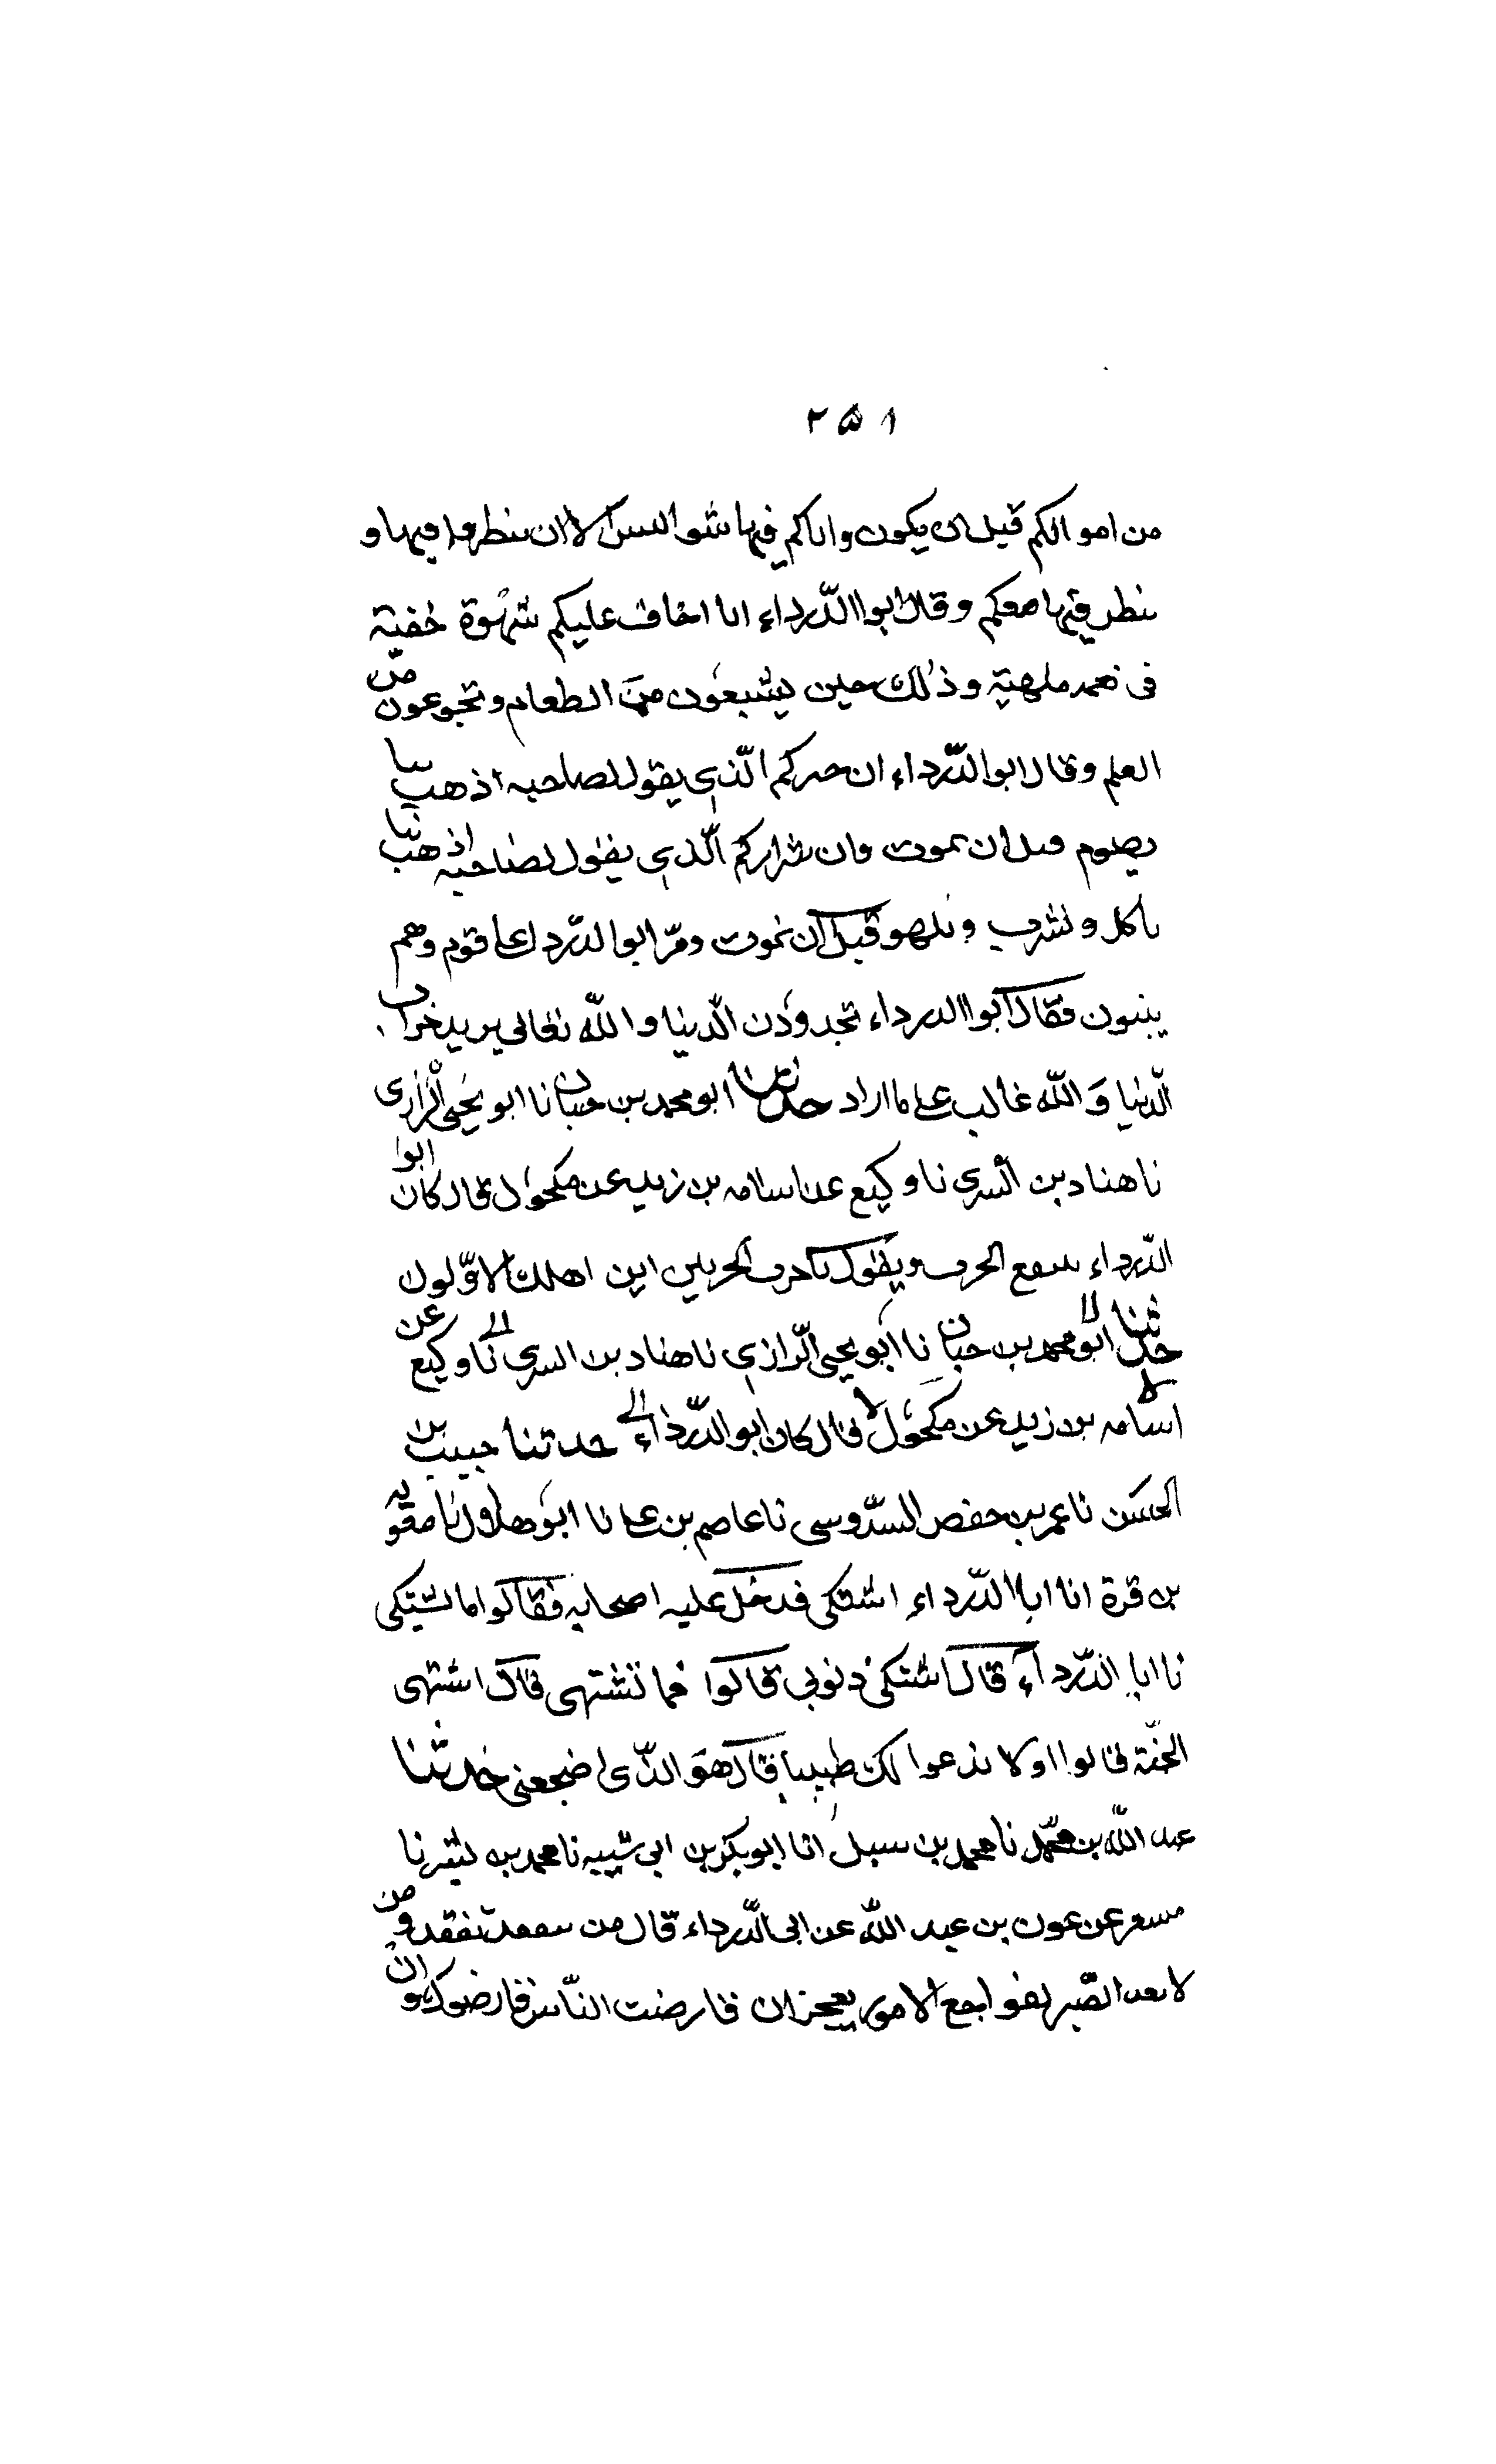 ٢٥١
من اموالكم قبل ان يكون واياكم فيها سواليس الا ان ينظروا فيها و
ننظر فيها معكم وقال ابوا الدّرداء انا اخاف عليكم شهْوة خفية
فى نعمه ملهية وذلك حين يشبعون من الطعام وتجوعون من
العلم وقال ابوا الدّرداء ان خيركم الّذي يقول لصاحبه اذهب بنا
نصوم قبل ان نموت وان شراركم الّذي يقول لصاحبه اذهب بنا
ناكل ونشرب ونلهو قبل ان نموت ومرّ ابوا الدّرداء على قوم وهم
يبنون فقال ابوا الدرداء تجددون الدّنيا والله تعالى يريد خراب
الدّنيا وَاللّه غالب على ما اراد حدثنا ابو محمد بن حبان نا ابو يحيى الرّازى
نا هناد بن السّرى نا وكيع عن اسامه بن زيد عن مكحول قال كان ابوا
الدّرداء يتبع الخرب ويقول يا خرب الخربين اين اهلك الاوّلون
حدثنا ابو محمد بن حبان نا ابو يحيى الّرازي نا هناد بن السرى نا وكيع عن
اسامه بن زيد عن مكحول قال كان ابو الدّرداء حدثنا حبيب بن
الحسَن نا عمر بن حفص السّدوسى نا عاصم بن على نا ابو هلال نا معويه
بن قرة انا ابا الدّرداء اشتكى فدخل عليه اصحابه فقالوا ما تشتكى
يا ابا الدّرداء قال اشتكى ذنوبي قالوا فما تشتهى قال اشتهى
الجنّة قالوا اولا ندعوا لك طبيبا قال هو الذّى اضجعنى حدثنا
عبد اللّه بن محمّد نا محمد بن سبل انا ابو بكر بن ابى شيبه نا محمد بن بشر نا
مسعر عن عون بن عبد اللّه عن ابى الدّرداء قال من يتفقد يفقد و من
لا يعد الصّبر لفواجع الامور يعجز ان قارضت النّاس قارضوك وان